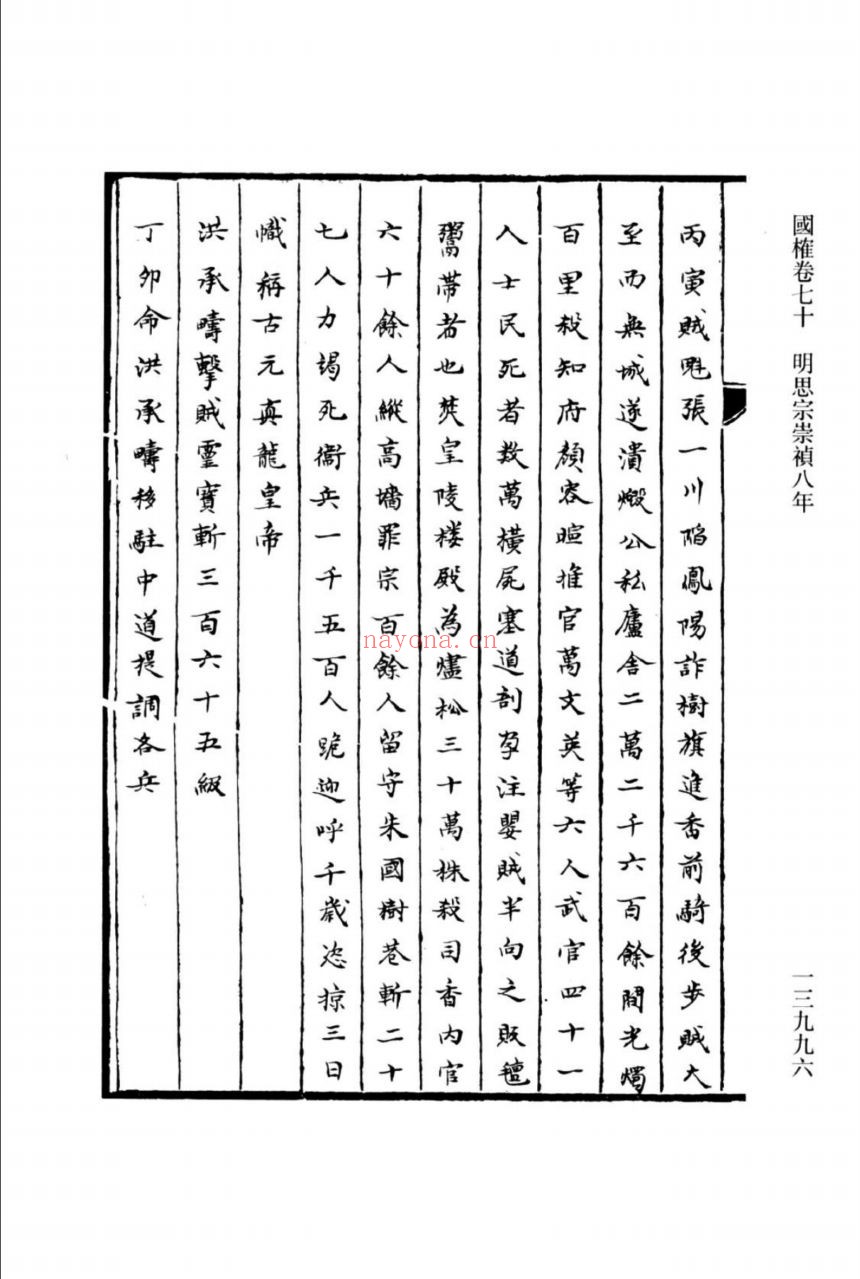 國榷卷七十 明思宗崇禎八年
一三九九六
丙寅賊魁張一川陷鳳陽詐樹旗進香前騎後步賊大
至而無城遂潰燬公私廬舍二萬二千六百餘間光燭
百里殺知府顏容暄推官萬文英等六人武官四十一
人士民死者数萬橫屍塞道剖孕注嬰賊半向之販氊
鬻帶者也焚皇陵楼殿為燼松三十萬株殺司香內官
六十餘人縱高墻罪宗百餘人留守朱國樹巷斬二十
七人力竭死衞兵一千五百人跪迎呼千歲恣掠三日
幟稱古元真龍皇帝
洪承疇擊賊靈寶斬三百六十五級
丁卯命洪承疇移駐中道提調各兵
nayona.cn